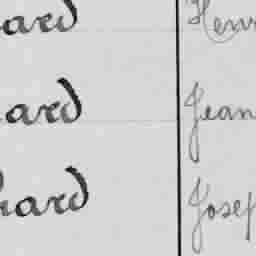 ard Henr
ard Jean
hard Josep